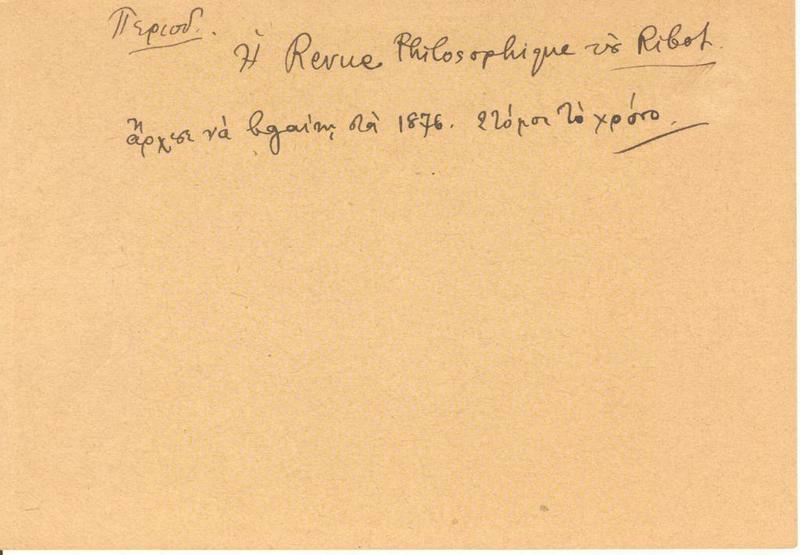 Περιοδ.
Ἡ Revue Philosophique τοῦ Ribot.
ἄρχισε νὰ βγαίνῃ στὰ 1876. 2 τόμοι τὸ χρόνο.